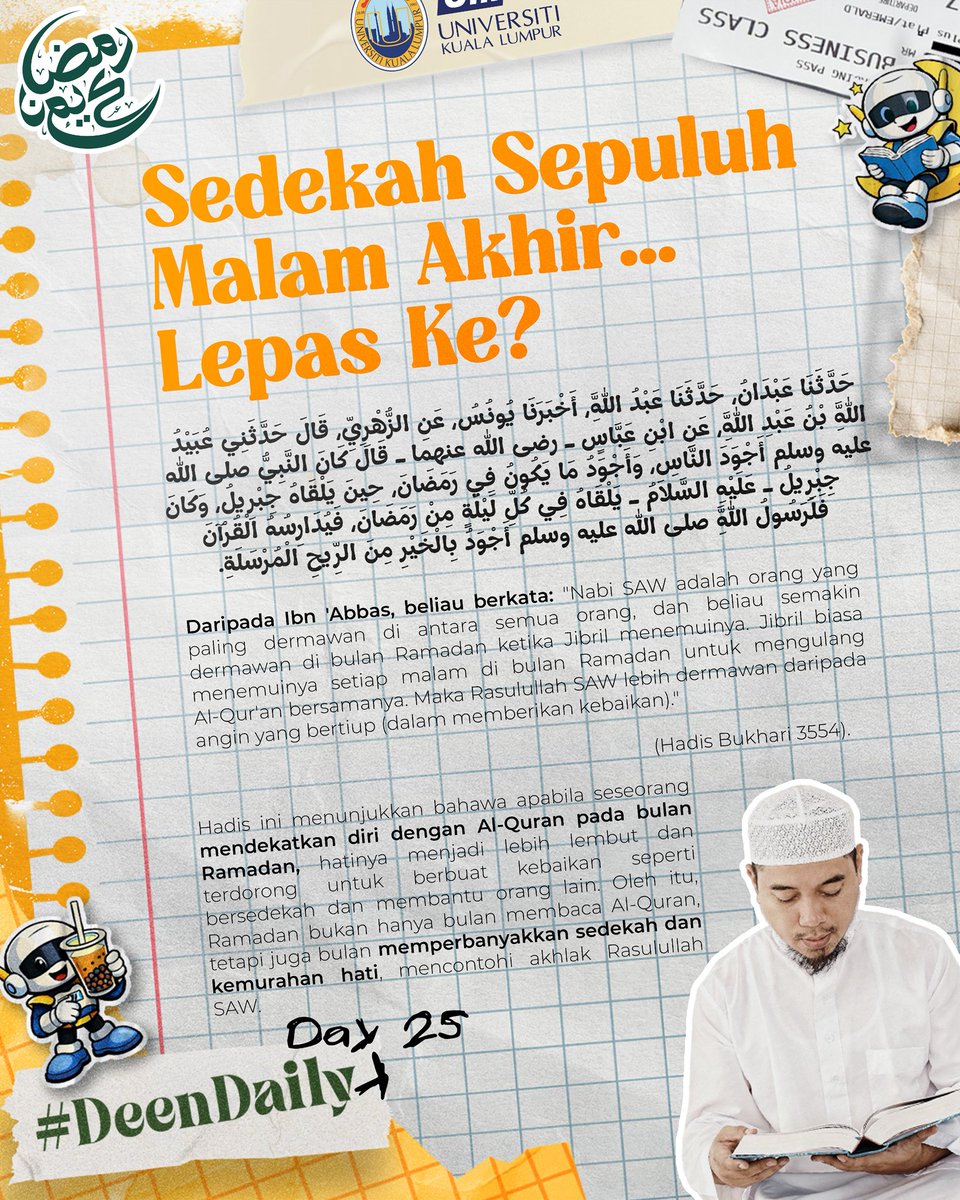 رمضان كريم
UNIVERSITI
KUALA LUMPUR
UNIVERSITI KUALA LUMPUR
BUSINESS CLASS
Sedekah Sepuluh
Malam Akhir...
Lepas Ke?
حَدَّثَنَا عَبْدَانُ، حَدَّثَنَا عَبْدُ اللَّهِ، أَخْبَرَنَا يُونُسُ، عَنِ الزُّهْرِيِّ، قَالَ حَدَّثَنِي عُبَيْدُ
اللَّهِ بْنُ عَبْدِ اللَّهِ، عَنِ ابْنِ عَبَّاسٍ ـ رضى الله عنهما ـ قَالَ كَانَ النَّبِيُّ صلى الله
عليه وسلم أَجْوَدَ النَّاسِ، وَأَجْوَدُ مَا يَكُونُ فِي رَمَضَانَ، حِينَ يَلْقَاهُ جِبْرِيلُ، وَكَانَ
جِبْرِيلُ ـ عَلَيْهِ السَّلَامُ ـ يَلْقَاهُ فِي كُلِّ لَيْلَةٍ مِنْ رَمَضَانَ، فَيُدَارِسُهُ الْقُرْآنَ
فَلَرَسُولُ اللَّهِ صلى الله عليه وسلم أَجْوَدُ بِالْخَيْرِ مِنَ الرِّيحِ الْمُرْسَلَةِ.
Daripada Ibn 'Abbas, beliau berkata: "Nabi SAW adalah orang yang
paling dermawan di antara semua orang, dan beliau semakin
dermawan di bulan Ramadan ketika Jibril menemuinya. Jibril biasa
menemuinya setiap malam di bulan Ramadan untuk mengulang
Al-Qur'an bersamanya. Maka Rasulullah SAW lebih dermawan daripada
angin yang bertiup (dalam memberikan kebaikan)."
(Hadis Bukhari 3554).
Hadis ini menunjukkan bahawa apabila seseorang
mendekatkan diri dengan Al-Quran pada bulan
Ramadan, hatinya menjadi lebih lembut dan
terdorong untuk berbuat kebaikan seperti
bersedekah dan membantu orang lain. Oleh itu,
Ramadan bukan hanya bulan membaca Al-Quran,
tetapi juga bulan memperbanyakkan sedekah dan
kemurahan hati, mencontohi akhlak Rasulullah
SAW.
Day 25
#DeenDaily